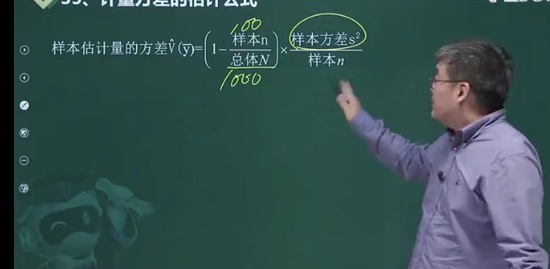 计量方差的估计公式
100
样本估计量的方差V̂(y̅)=(1-样本n/总体N)×样本方差s²/样本n
1000